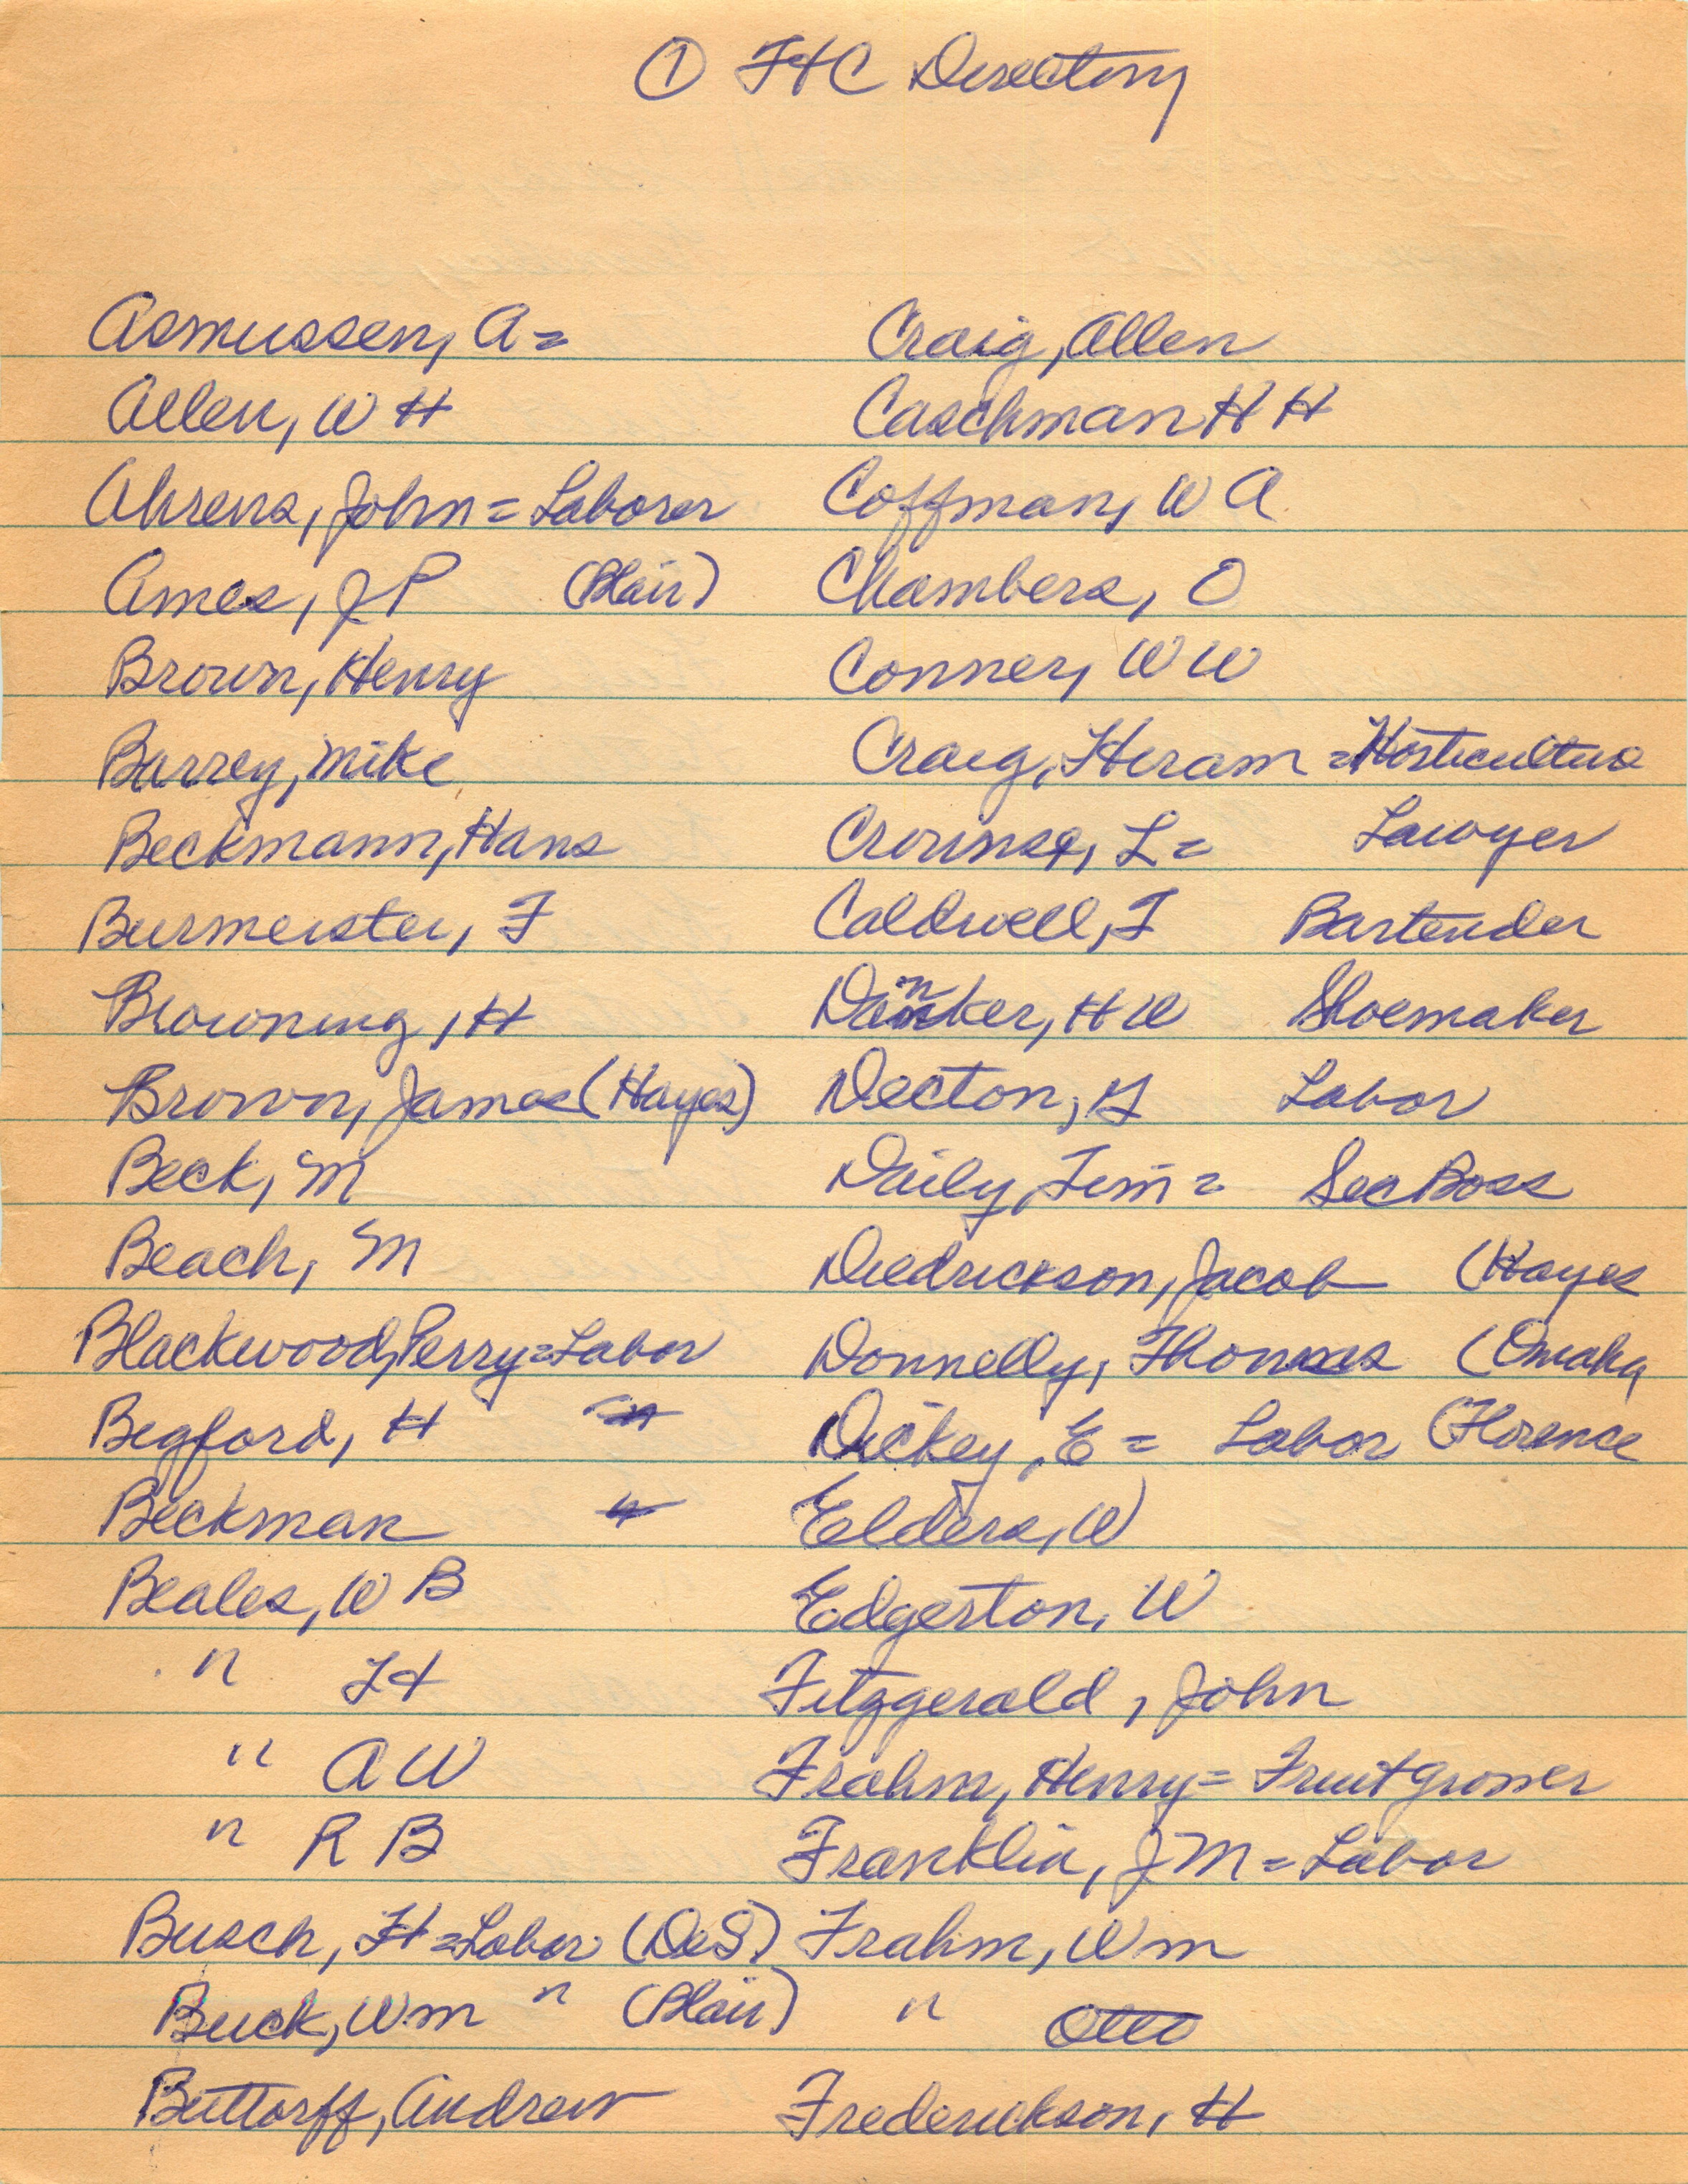 ① FtC Directory
Asmussen, A =
Allen, W H
Ahrens, John = Laborer
Ames, J P (Blair)
Brown, Henry
Barrey, Mike
Beckmann, Hans
Burmeister, F
Browning, H
Brown, James (Hayes)
Beck, M
Beach, M
Blackwood, Perry = Labor
Begford, H "
Beckman "
Beales, W B
" LH
" A W
" R B
Busch, H = Labor (DeS)
Buck, Wm " (Blair)
Buttorff, Andrew
Craig, Allen
Caschman H H
Coffman, W A
Chambers, O
Conner, W W
Craig, Hiram = Horticultur
Crounse, L = Lawyer
Caldwell, F Bartender
Danker, H W Shoemaker
Decton, Labor
Daily, Jim = Sec Boss
Diedrickson, Jacob (Hayes
Donnelly, Thomas (Omaha
Dickey, E = Labor (Florence
Elders, W
Edgerton, W
Fitzgerald, John
Frahm, Henry = Fruit grower
Franklin, J M = Labor
Frahm, Wm
" Otto
Frederickson, H